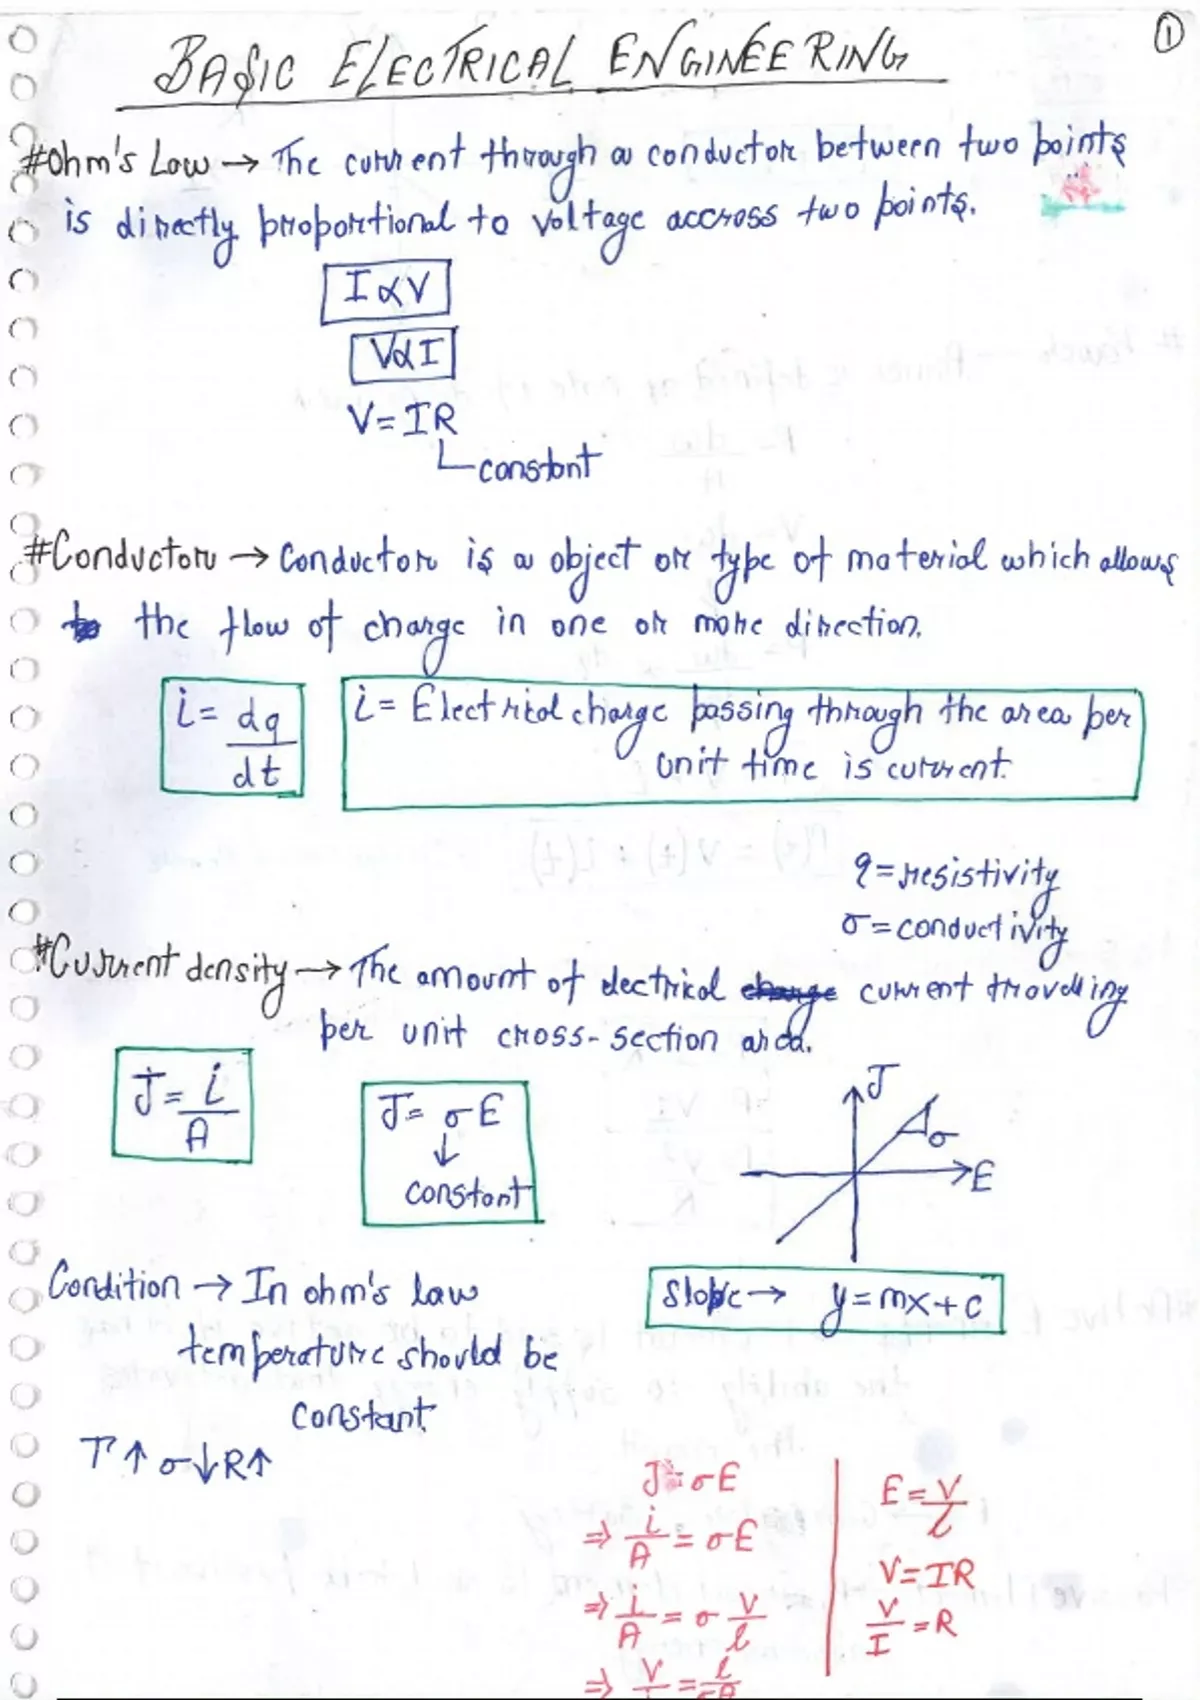 ①
BASIC ELECTRICAL ENGINEERING
#Ohm's Law → The current through a conductor between two points
is directly proportional to voltage accross two points.
I ∝ V
V ∝ I
V = IR
constant
#Conductor → Conductor is a object or type of material which allows
the flow of charge in one or more direction.
i = dq/dt
i = Electrical charge passing through the area per
unit time is current.
ρ = resistivity
σ = conductivity
#Current density → The amount of electrical charge current travelling
per unit cross-section area.
J = i/A
J = σE
↓
constant
J
σ
E
Slope → y = mx + c
Condition → In ohm's law
temperature should be
constant.
T↑ σ↓ R↑
J = σE
⇒ i/A = σE
⇒ i/A = σ V/l
⇒ V/ = l/σA
E = V/l
V = IR
V/I = R